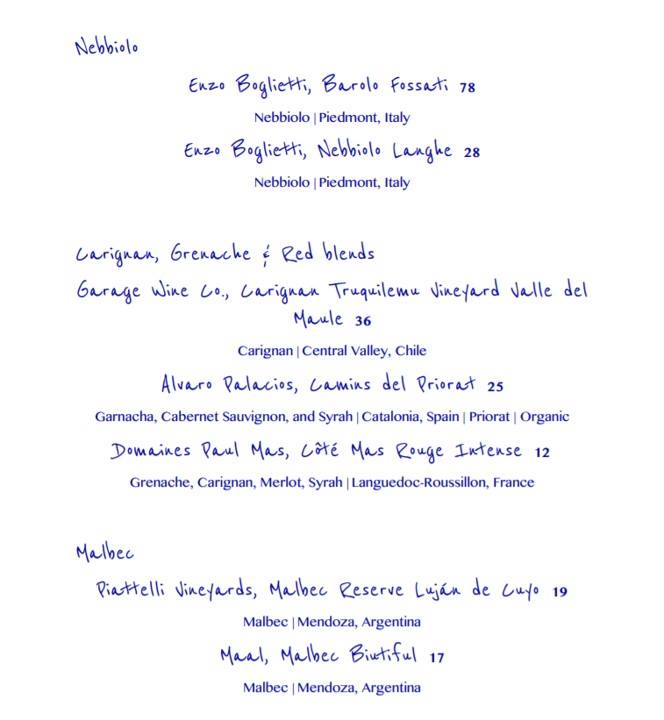 Nebbiolo
Enzo Boglietti, Barolo Fossati 78
Nebbiolo | Piedmont, Italy
Enzo Boglietti, Nebbiolo Langhe 28
Nebbiolo | Piedmont, Italy
Carignan, Grenache & Red blends
Garage Wine Co., Carignan Truquilemu Vineyard Valle del
Maule 36
Carignan | Central Valley, Chile
Alvaro Palacios, Camins del Priorat 25
Garnacha, Cabernet Sauvignon, and Syrah | Catalonia, Spain | Priorat | Organic
Domaines Paul Mas, Côté Mas Rouge Intense 12
Grenache, Carignan, Merlot, Syrah | Languedoc-Roussillon, France
Malbec
Piattelli Vineyards, Malbec Reserve Luján de Cuyo 19
Malbec | Mendoza, Argentina
Maal, Malbec Biutiful 17
Malbec | Mendoza, Argentina